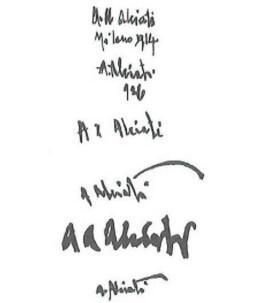 A. Alciati
Milano 1914
A. Alciati
A Alciati
A Alciati
A a Alciati
A. Alciati